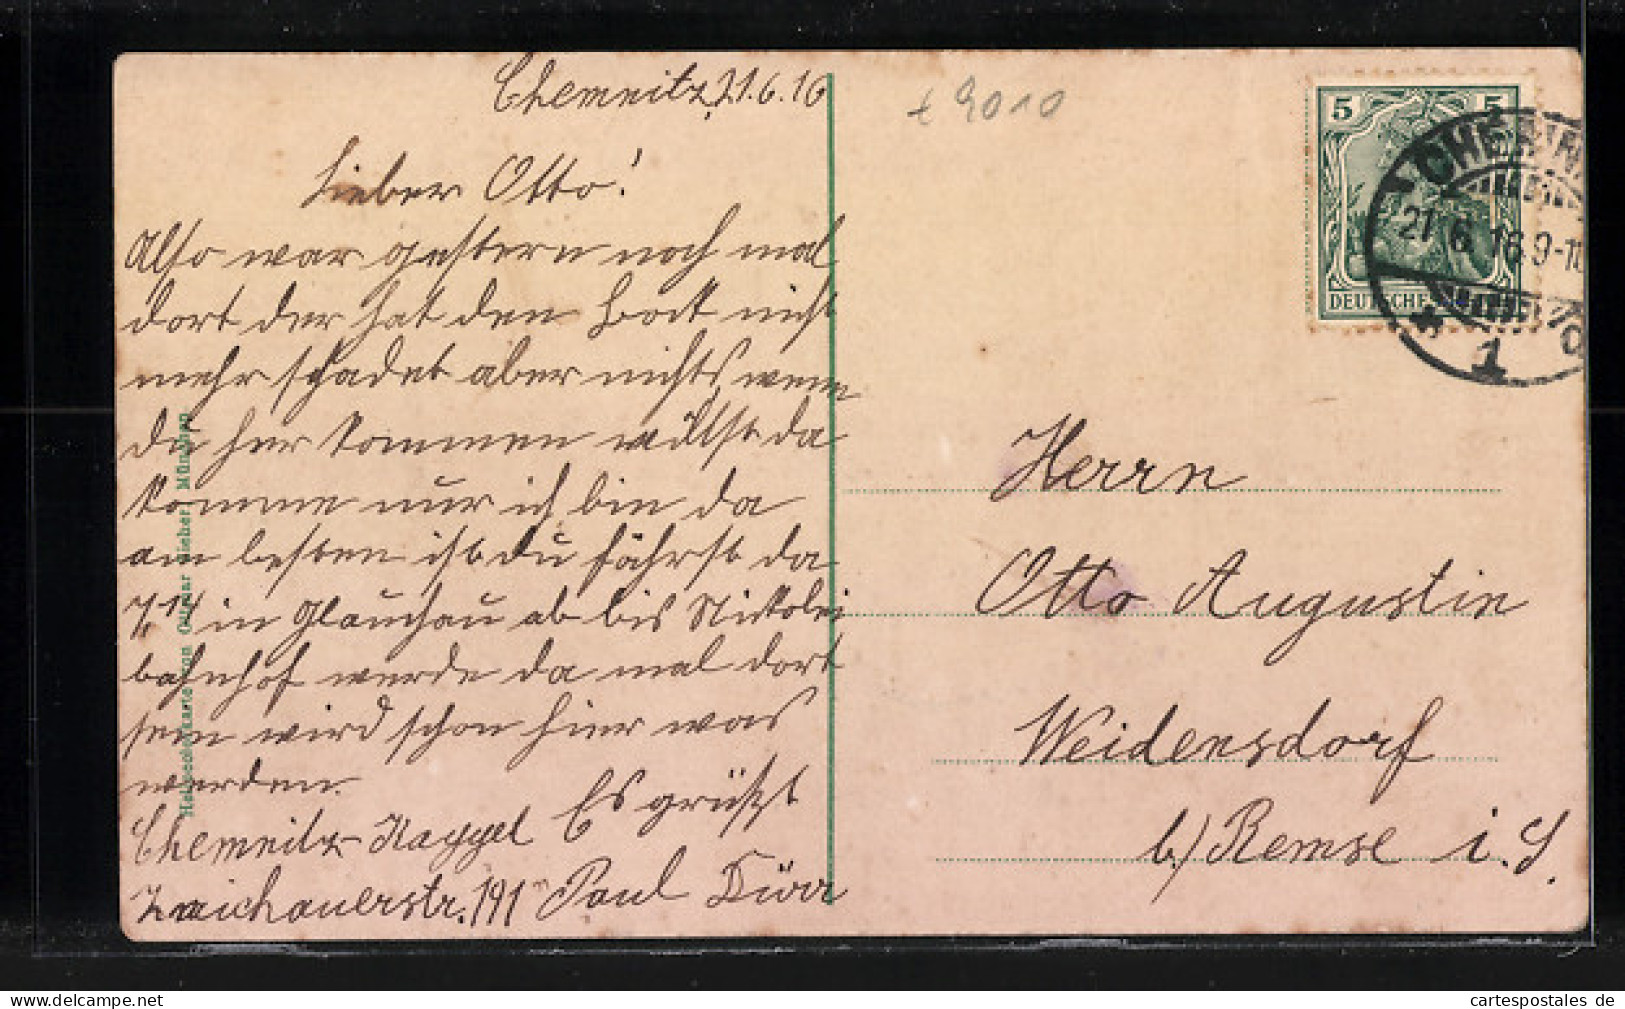 Chemnitz, 21.6.16
Lieber Otto!
Also war gestern noch mal
dort der hat den Bock nicht
mehr schadet aber nichts, wenn
du her kommen willst da
komme nur ich bin da
am besten ist du fährst da
7 14 in Glauchau ab bis Nikolei
bahnhof werde da mal dort
sein wird schon hier was
werden.
Es grüßt
Chemnitz-Kappel
Paul Dürr
Zwickauerstr. 191
Halbseidenkarte von Ottmar Zieher, München
£ 9010
5 5
DEUTSCHES
CHEMN
21.6.16.9-10
* 1
Herrn
Otto Augustin
Weidensdorf
b/ Remse i. S.
hps-collector
cartespostales de